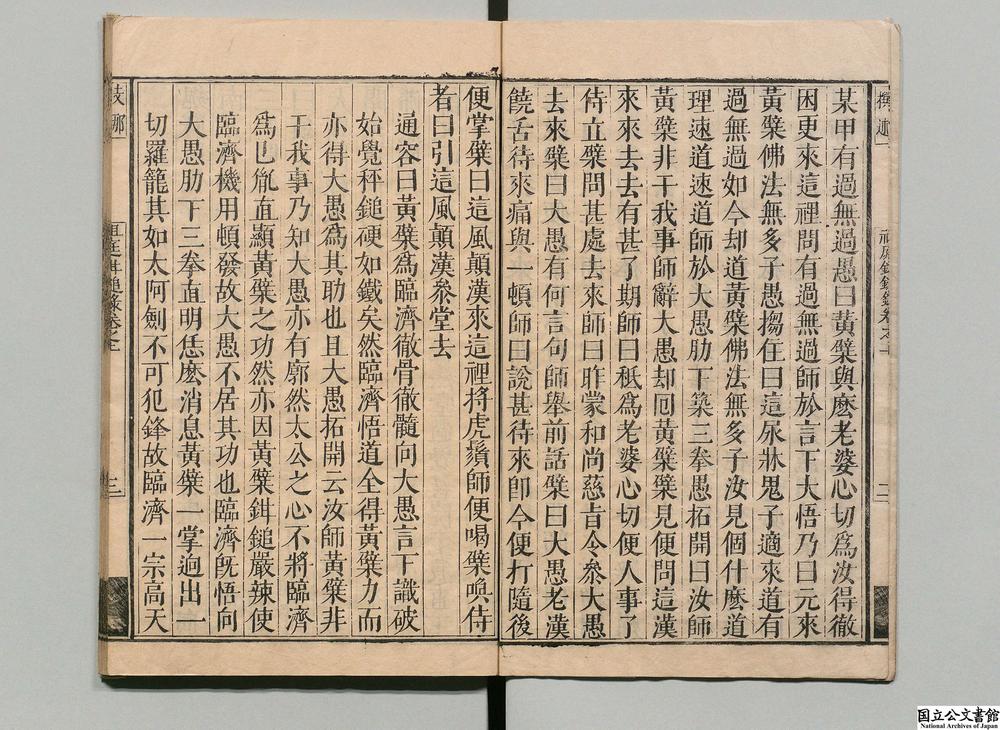 某甲有過無過愚曰黃檗與麽老婆心切爲汝得徹
困更來這裡問有過無過師於言下大悟乃曰元來
黃檗佛法無多子愚搊住曰這尿牀鬼子適來道有
過無過如今却道黃檗佛法無多子汝見個什麽道
理速道速道師於大愚肋下築三拳愚拓開曰汝師
黃檗非干我事師辭大愚却囘黃檗檗見便問這漢
來來去去有甚了期師曰秪爲老婆心切便人事了
侍立檗問甚處去來師曰昨蒙和尚慈旨令叅大愚
去來檗曰大愚有何言句師舉前話檗曰大愚老漢
饒舌待來痛與一頓師曰說甚待來卽今便打隨後
便掌檗曰這風顛漢來這裡捋虎鬚師便喝檗喚侍
者曰引這風顛漢叅堂去
通容曰黃檗爲臨濟徹骨徹髓向大愚言下識破
始覺秤鎚硬如鐵矣然臨濟悟道全得黃檗力而
亦得大愚爲其助也且大愚拓開云汝師黃檗非
干我事乃知大愚亦有廓然太公之心不將臨濟
爲己胤直顯黃檗之功然亦因黃檗鉗鎚嚴辣使
臨濟機用頓發故大愚不居其功也臨濟旣悟向
大愚肋下三拳直明恁麽消息黃檗一掌迥出一
切羅籠其如太阿劍不可犯鋒故臨濟一宗高天
三
国立公文書館
National Archives of Japan